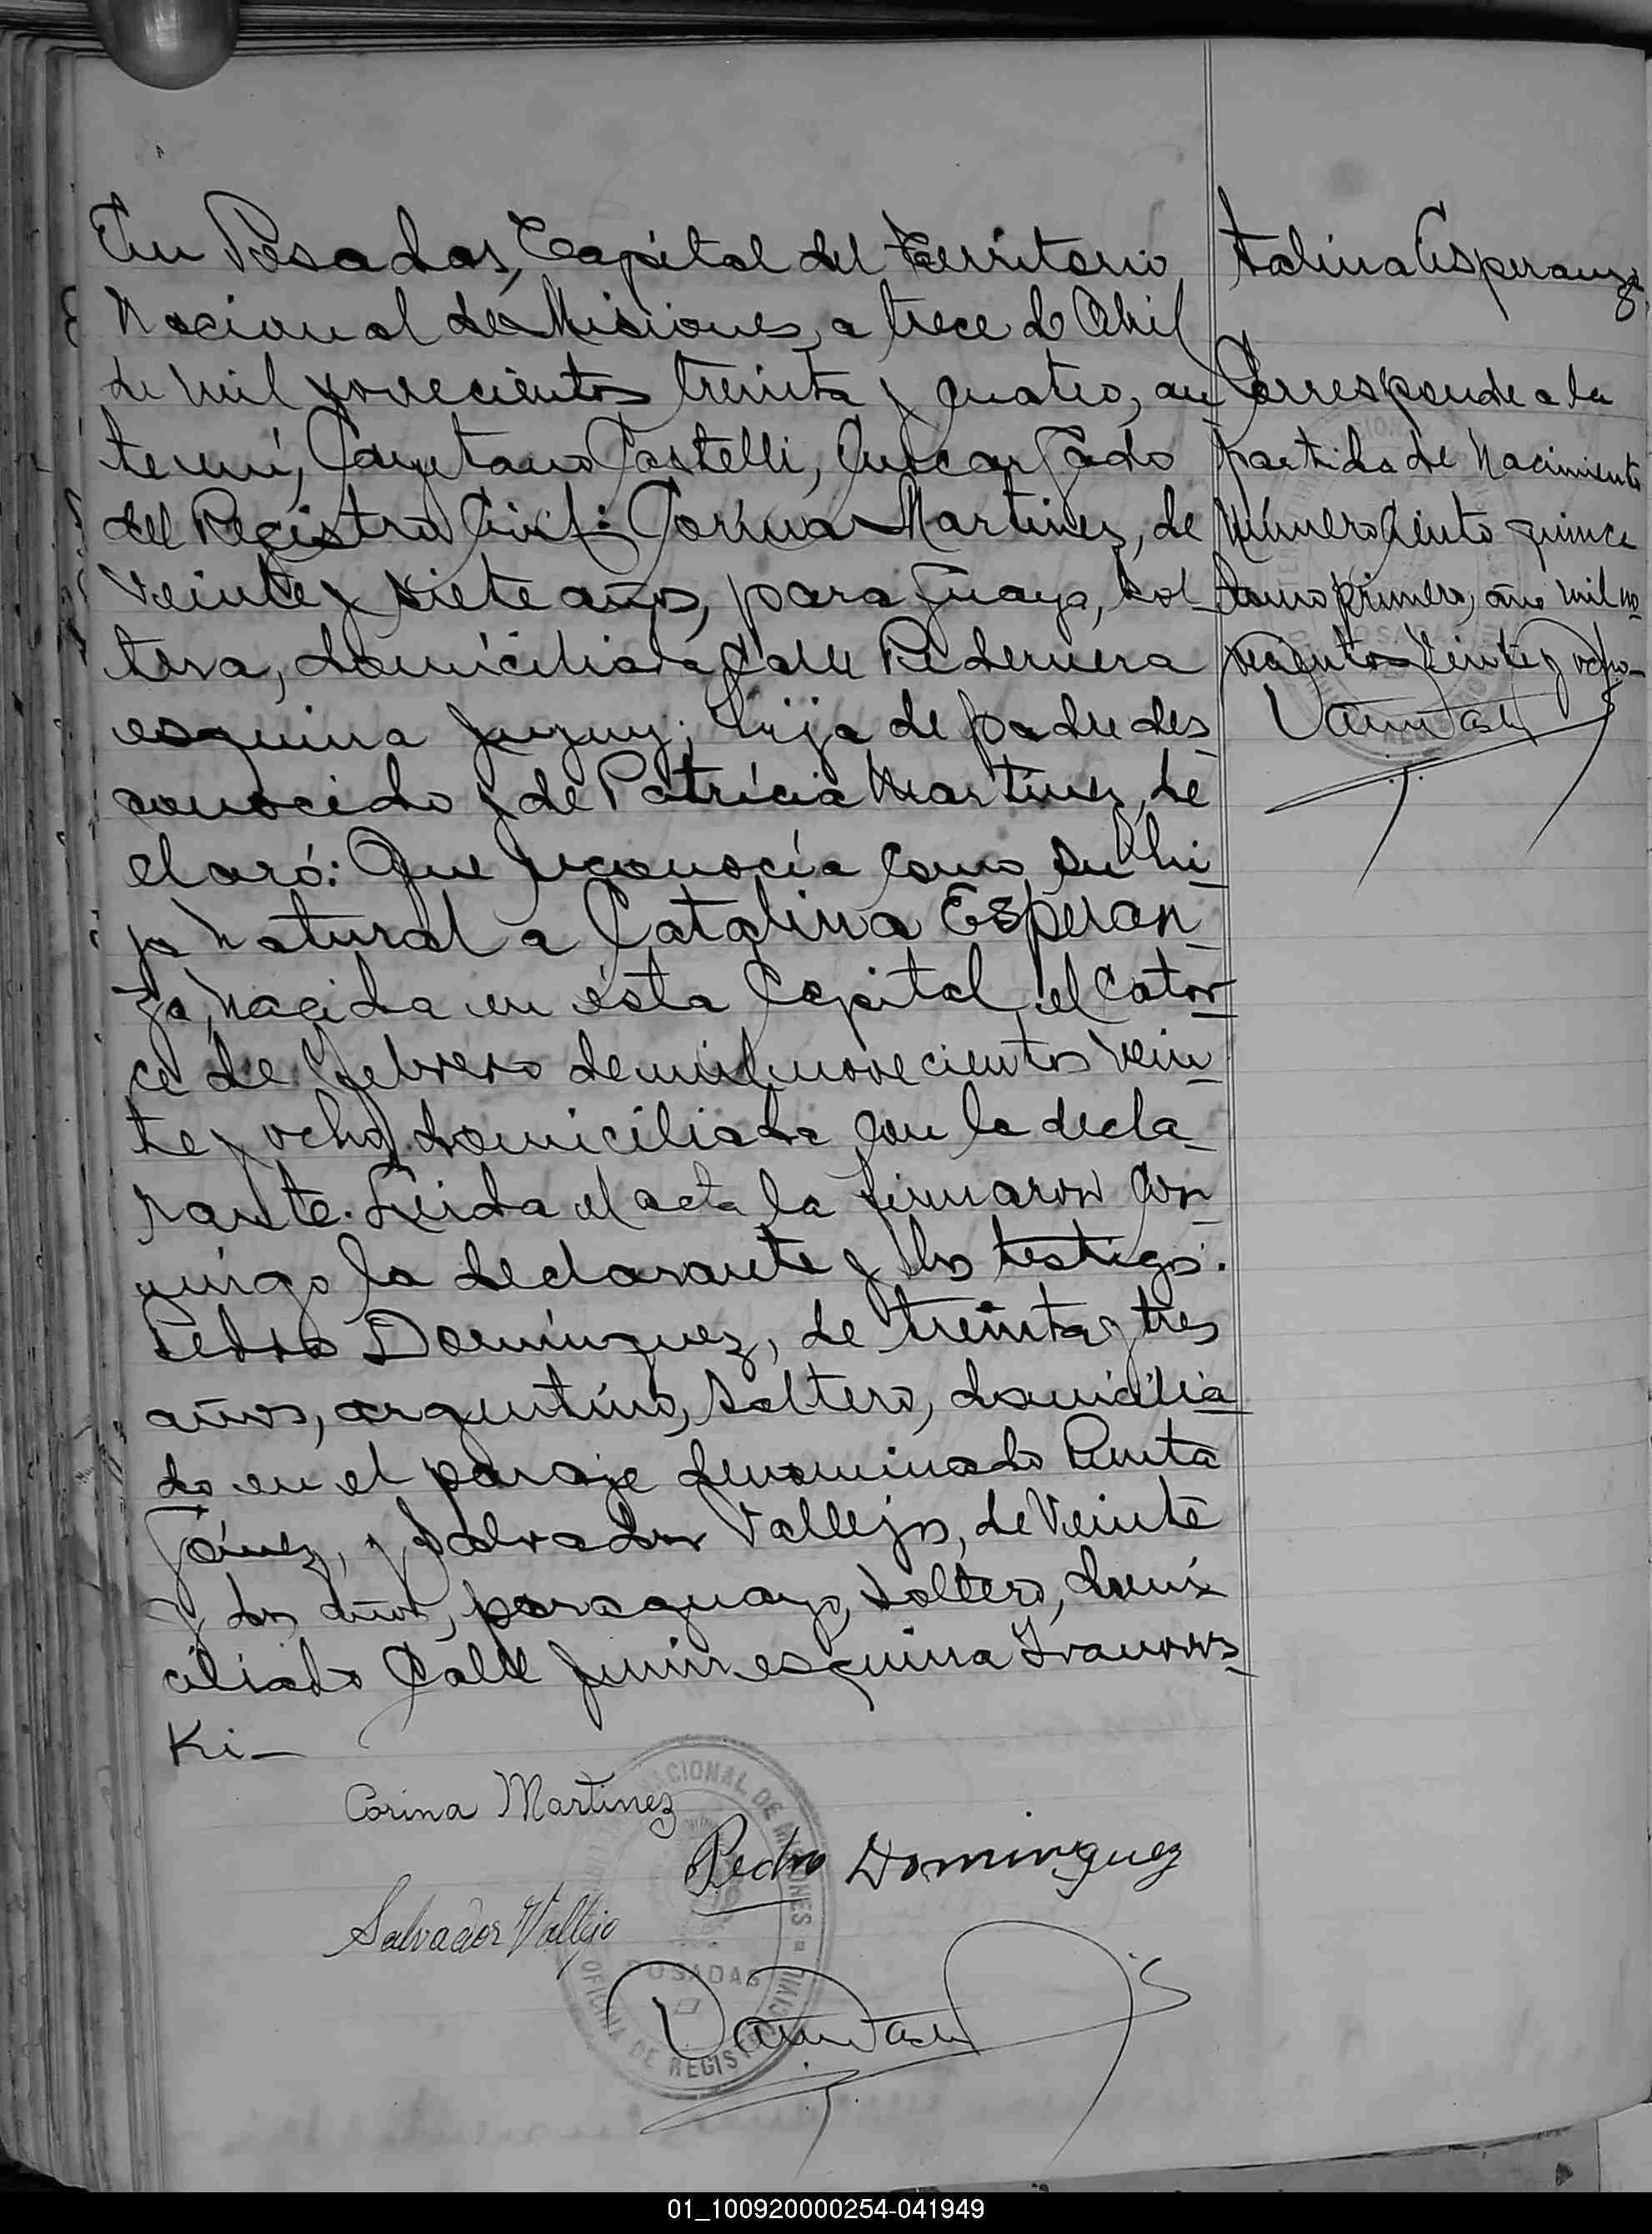 En Posadas, Capital del Territorio
Nacional de Misiones, a trece de Abril
de mil novecientos treinta y cuatro, an
te mí, Cayetano Castelli, Encargado
del Registro Civil: Corina Martinez, de
veinte y siete años, paraguaya, sol
tera, domiciliada Calle Pedernera
esquina Jujuy; hija de padre des
conocido y de Patricia Martinez, de
claró: Que reconocía como su hi
ja natural a Catalina Esperan
za, nacida en ésta Capital, el cator
ce de Febrero de mil novecientos vein
te y ocho, domiciliada con la decla
rante. Leida el acta la firmaron con
migo la declarante y los testigos:
Pedro Dominguez, de treinta y tres
años, argentino, soltero, domicilia
do en el paraje denominado Punta
Gómez, y Salvador Vallejos, de veinte
y dos años, paraguayo, soltero, domi
ciliado Calle Junin esquina Ivanows
Ki-
talina Esperanza
Corresponde a la
partida de Nacimiento
número Ciento quince
tomo primero, año mil no
vecientos veinte y ocho-
Corina Martinez
Pedro Dominguez
Salvador Vallejo
NACIONAL DE MISIONES
POSADAS
OFICINA DE REGISTRO CIVIL
01_100920000254-041949